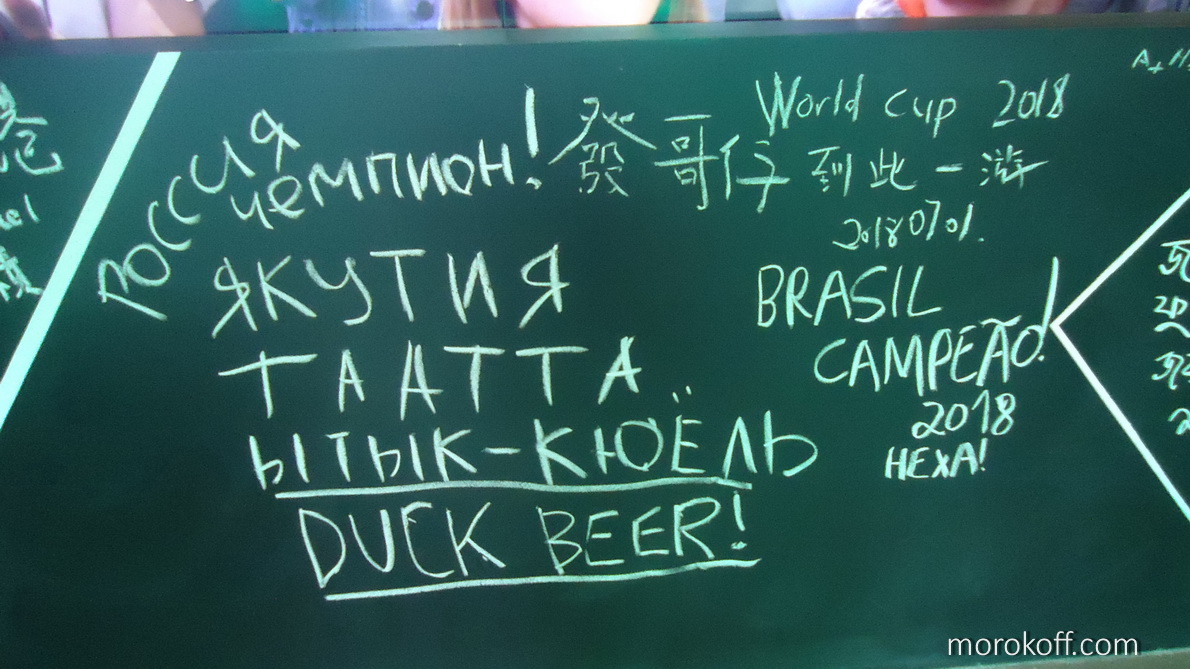 Россия
чемпион!
ЯКУТИЯ
ТААТТА
ЫТЫК-КЮЁЛЬ
DUCK BEER!
World Cup 2018
發哥仔到此一游
20180701.
BRASIL
CAMPEÃO!
2018
HEXA!
morokoff.com